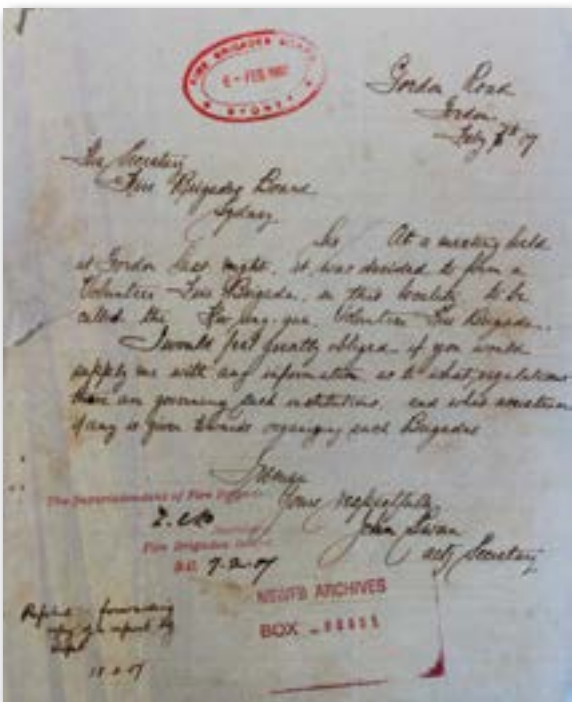 FIRE BRIGADES BOARD
6 - FEB 1907
SYDNEY
Gordon Road
Gordon
Feby 07
The Secretary
Fire Brigades Board
Sydney
Sir At a meeting held
at Gordon last night, it was decided to form a
Volunteer Fire Brigade, in this locality, to be
called the Ku-ring-gai Volunteer Fire Brigade.
I would feel greatly obliged if you would
supply me with any information as to what regulations
there are governing such institutions, and what assistance
if any is given towards organizing such Brigades
Yours respectfully
John Swan
actg Secretary
The Superintendent of Fire Brigades
Fire Brigades Board
7-2-07
NSWFB ARCHIVES
BOX
forwarding
copy of report by